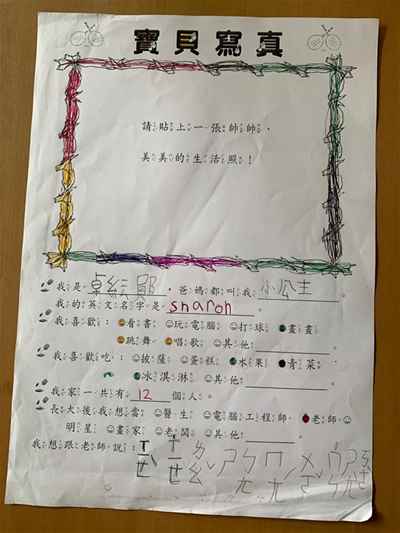 寶貝寫真
請貼上一張帥帥、
美美的生活照！
我是，爸媽都叫我小公主
我的英文名字是sharon
我喜歡：看書 玩電腦 打球 畫畫
跳舞 唱歌 其他
我喜歡吃：披薩 蛋糕 水果 青菜
冰淇淋 其他
我家一共有12個人。
長大後我想當：醫生 電腦工程師 老師
明星 畫家 老闆 其他
我想跟老師說：